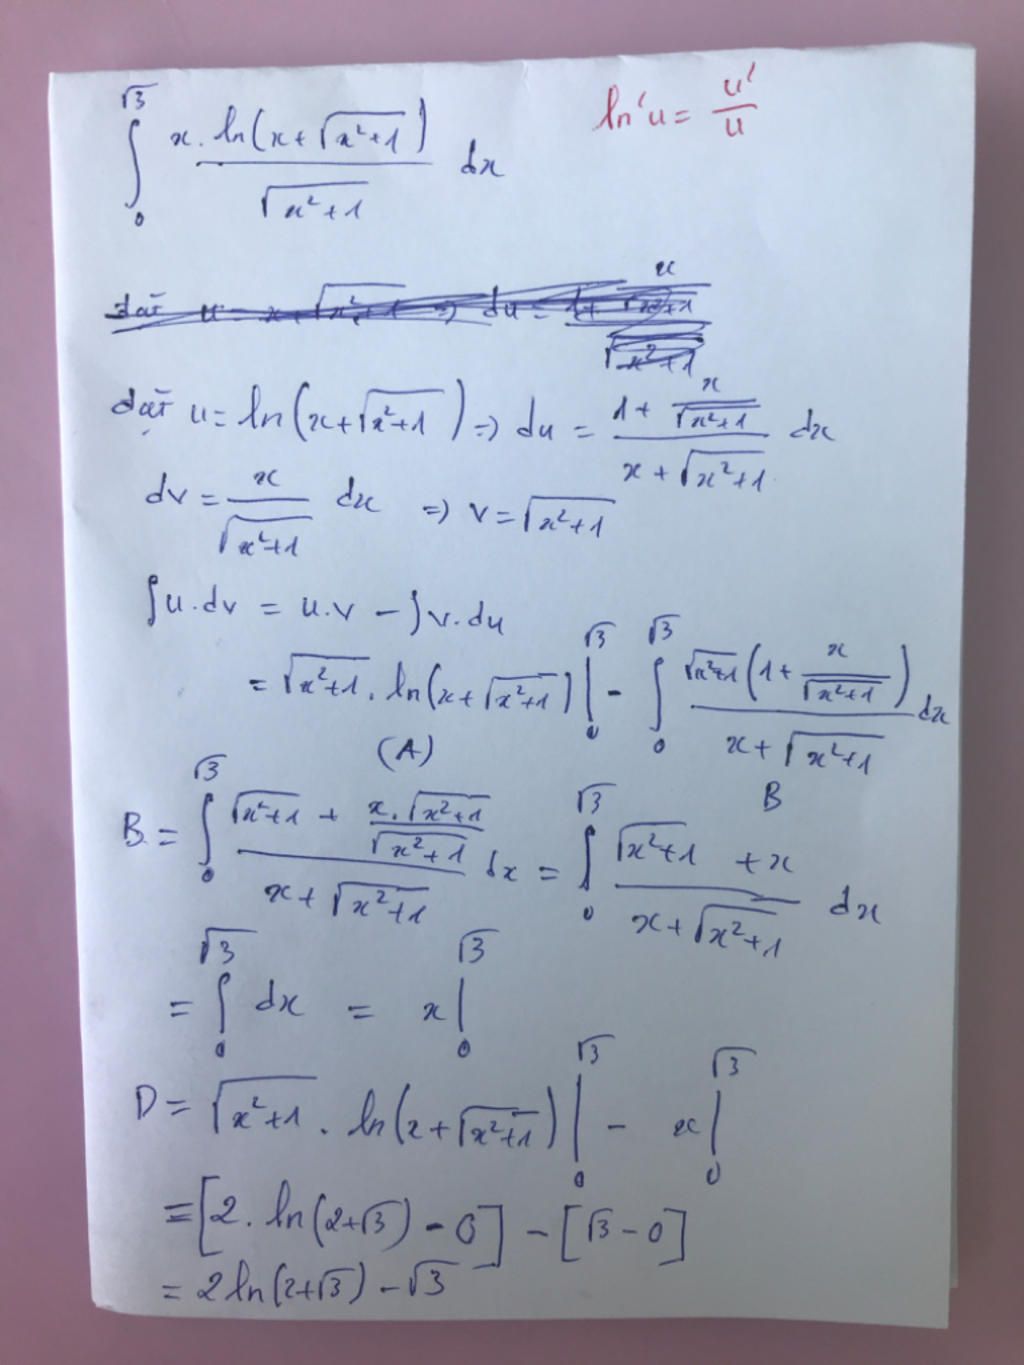 ∫₀^√3 x.ln(x+√(x²+1)) / √(x²+1) dx
ln'u = u'/u
đặt u = ln(x+√(x²+1)) => du = (1 + x/√(x²+1)) / (x+√(x²+1)) dx
dv = x/√(x²+1) dx => v = √(x²+1)
∫u.dv = u.v - ∫v.du
= √(x²+1) . ln(x+√(x²+1)) |₀^√3 - ∫₀^√3 √(x²+1)(1 + x/√(x²+1)) / (x+√(x²+1)) dx
(A) B
B = ∫₀^√3 (√(x²+1) + x.√(x²+1)/√(x²+1)) / (x+√(x²+1)) dx = ∫₀^√3 (√(x²+1) + x) / (x+√(x²+1)) dx
= ∫₀^√3 dx = x |₀^√3
D = √(x²+1) . ln(x+√(x²+1)) |₀^√3 - x |₀^√3
= [2. ln(2+√3) - 0] - [√3 - 0]
= 2 ln(2+√3) - √3